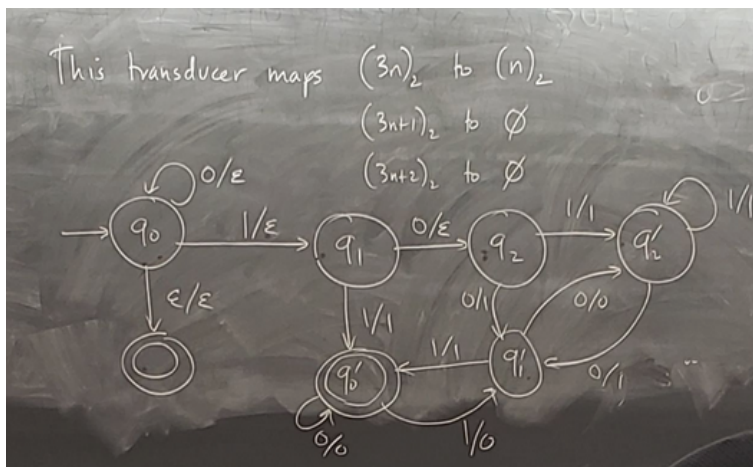 This transducer maps (3n)₂ to (n)₂
(3n+1)₂ to ∅
(3n+2)₂ to ∅
0/ε
1/1
q₀
1/ε
q₁
0/ε
q₂
1/1
q₂′
ε/ε
1/1
0/1
0/0
q₀′
1/1
q₁′
0/1
0/0
1/0